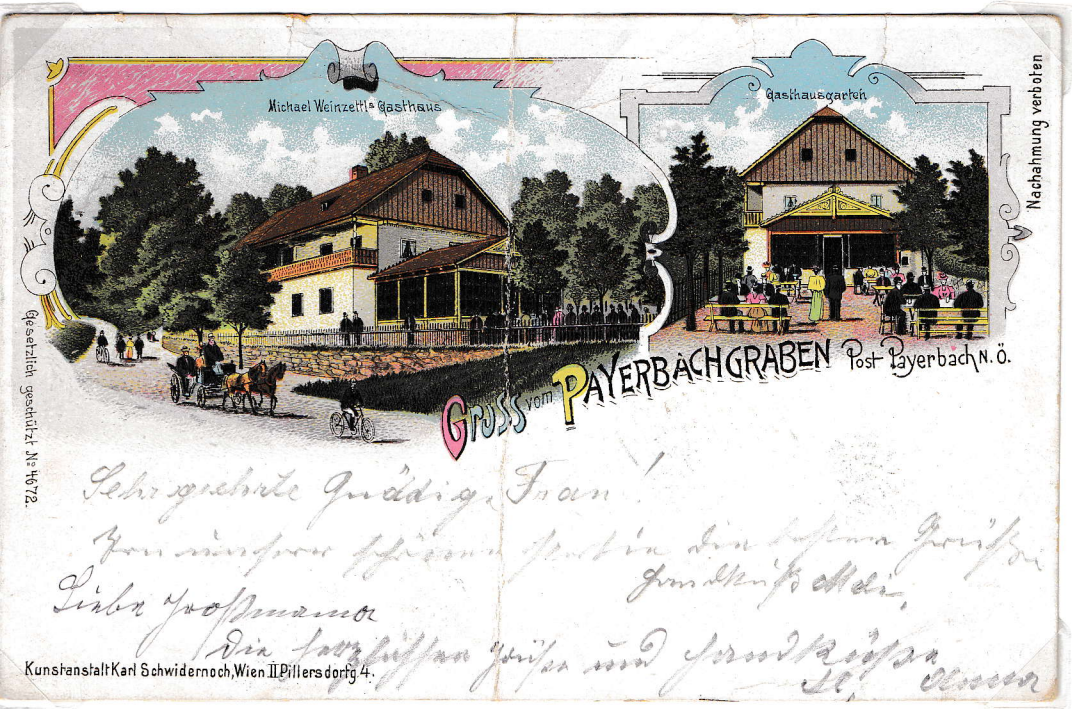 Michael Weinzettls Gasthaus
Gasthausgarten
Nachahmung verboten
Gesetzlich geschützt No 4672.
Gruss vom PAYERBACHGRABEN Post Payerbach N. Ö.
Sehr geehrte Gnädige Frau!
Von unserer schönen Partie die besten Grüße
Handkuß
Liebe Großmama
Die herzlichsten Grüße und Handküsse
Kunstanstalt Karl Schwidernoch, Wien II Pillersdorfg. 4.
Anna